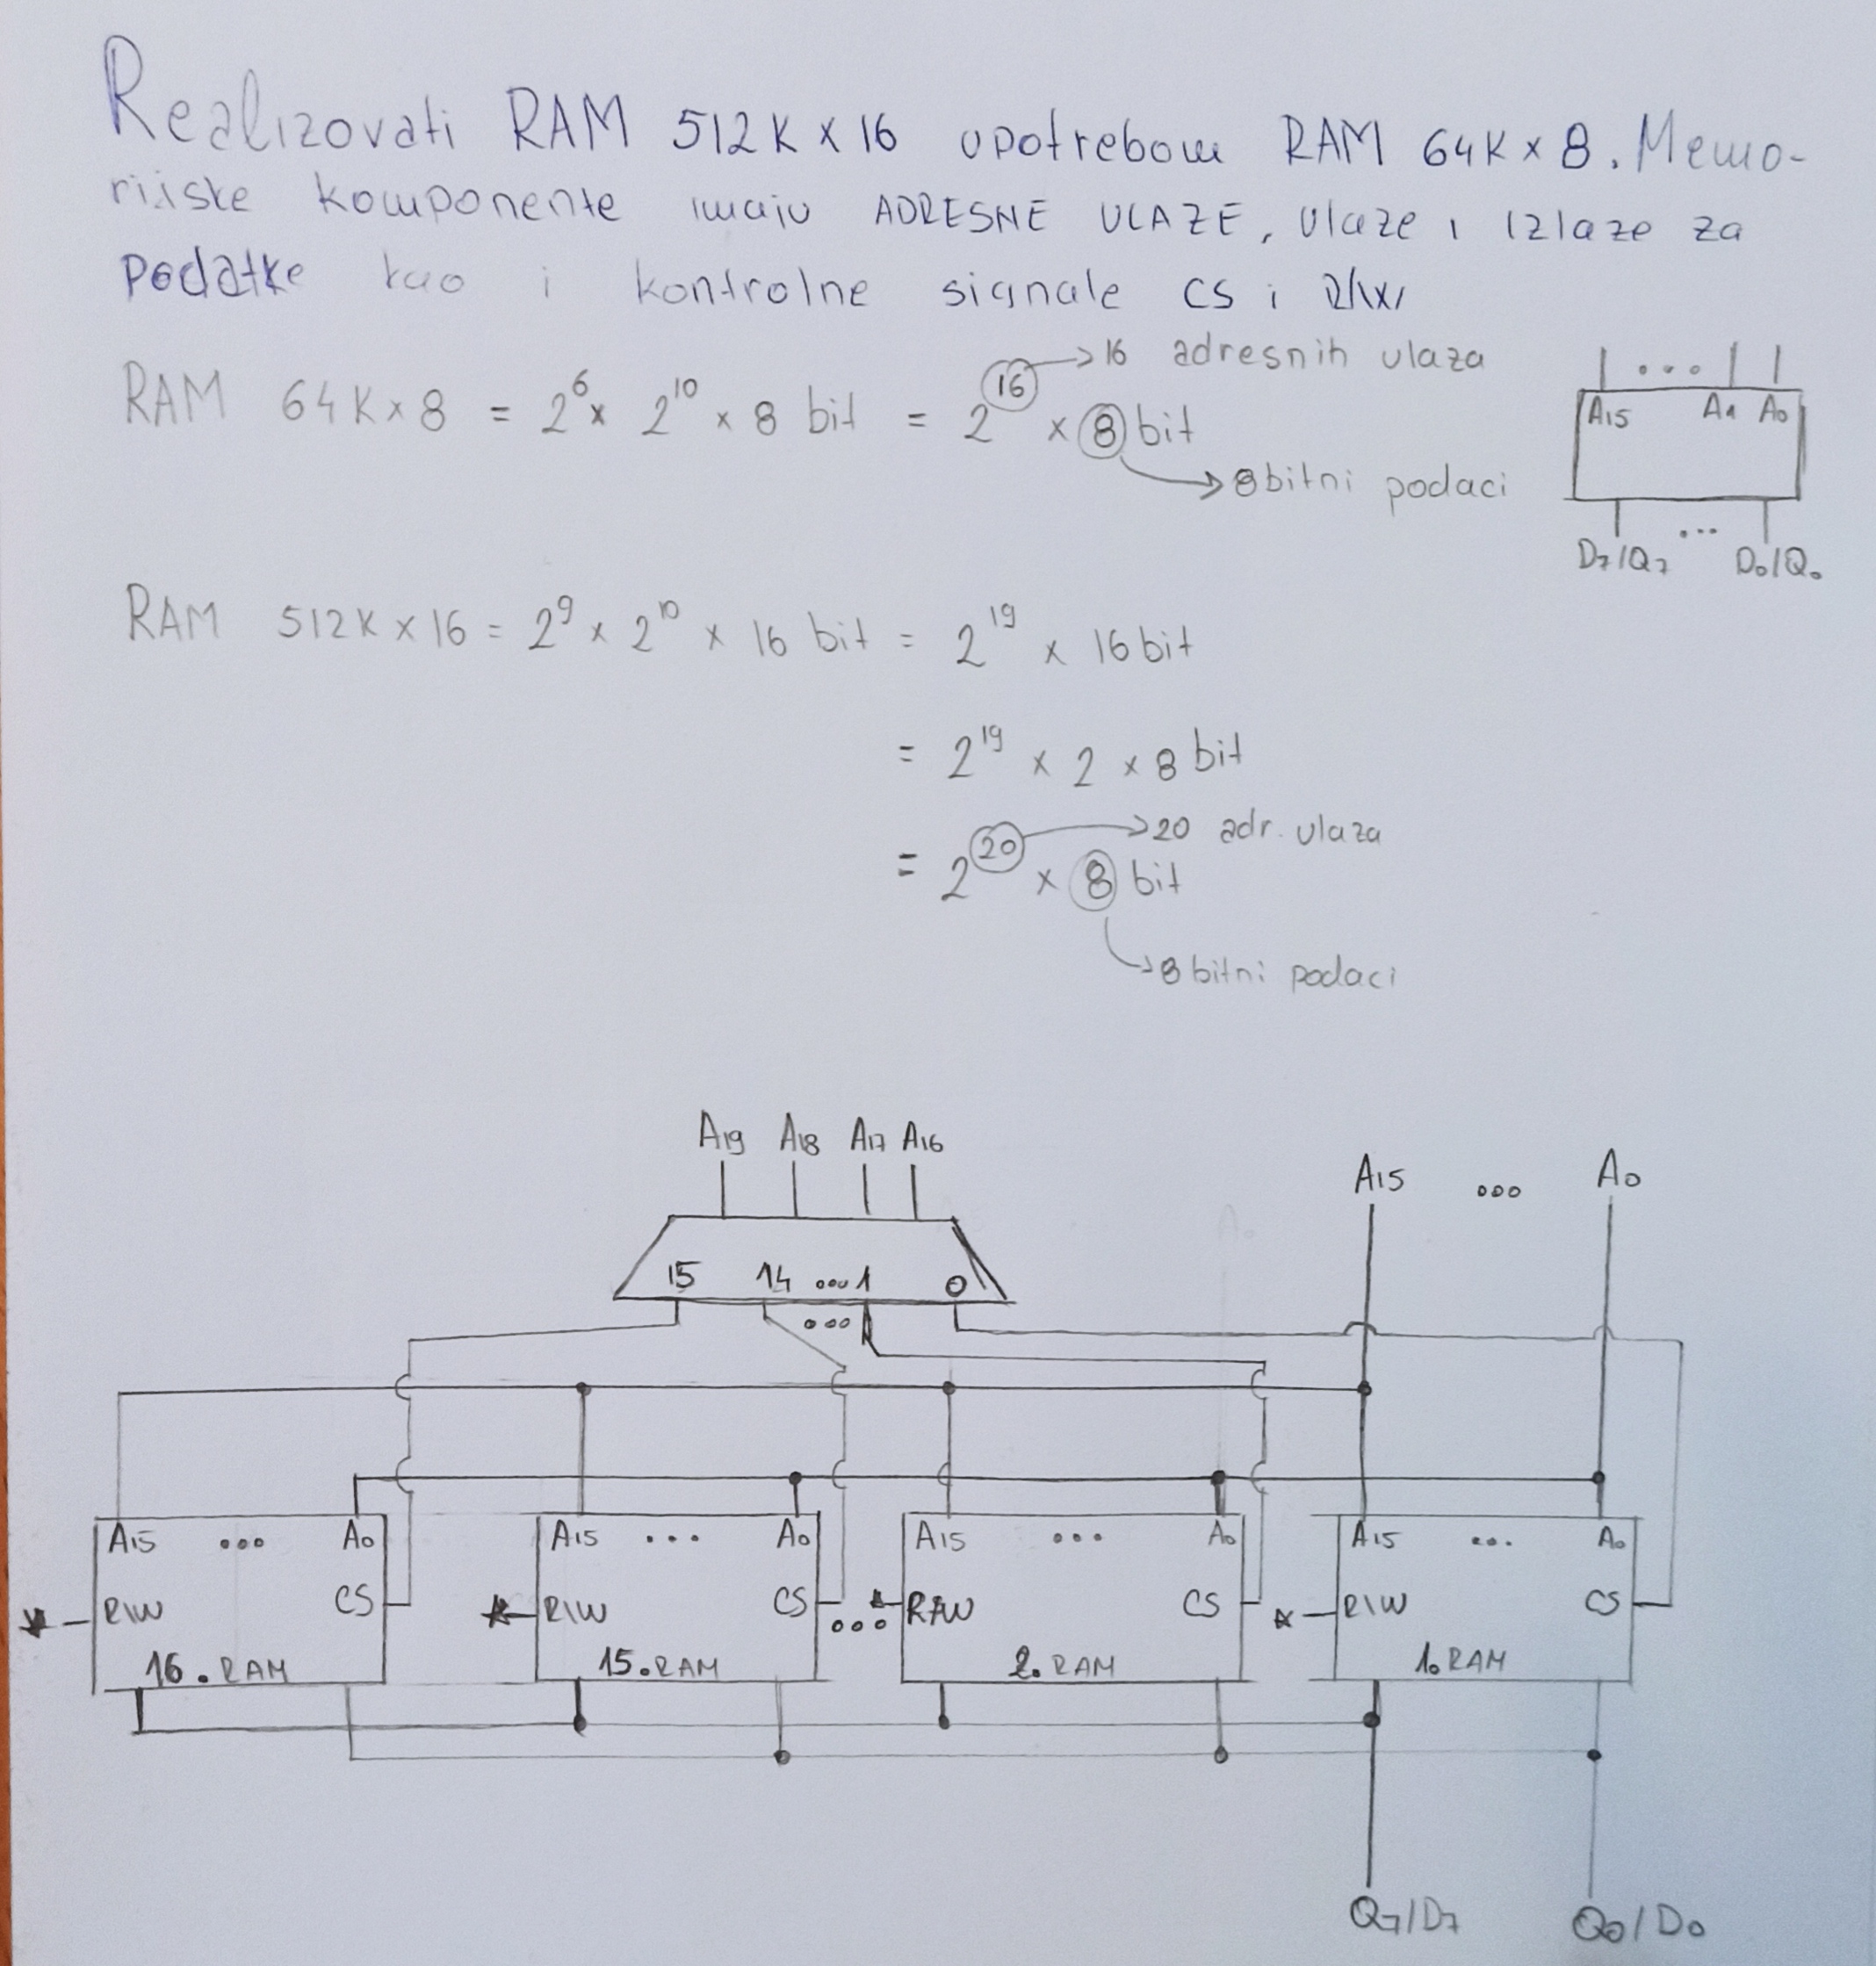 Realizovati RAM 512K x 16 upotrebom RAM 64K x 8. Memo-
rijske komponente imaju ADRESNE ULAZE, Ulaze i Izlaze za
podatke kao i kontrolne signale CS i R/W
RAM 64K x 8 = 2^6 x 2^10 x 8 bit = 2^16 x 8 bit
→ 16 adresnih ulaza
→ 8bitni podaci
A15 A1 A0
...
D7/Q7 ... D0/Q0
RAM 512K x 16 = 2^9 x 2^10 x 16 bit = 2^19 x 16 bit
= 2^19 x 2 x 8 bit
= 2^20 x 8 bit
→ 20 adr. ulaza
→ 8 bitni podaci
A19 A18 A17 A16
A15 ... A0
15 14 ... 1 0
...
A15 ... A0 A15 ... A0 A15 ... A0 A15 ... A0
* R/W CS * R/W CS ... * R/W CS * R/W CS
16. RAM 15. RAM 2. RAM 1. RAM
Q7/D7 Q0/D0